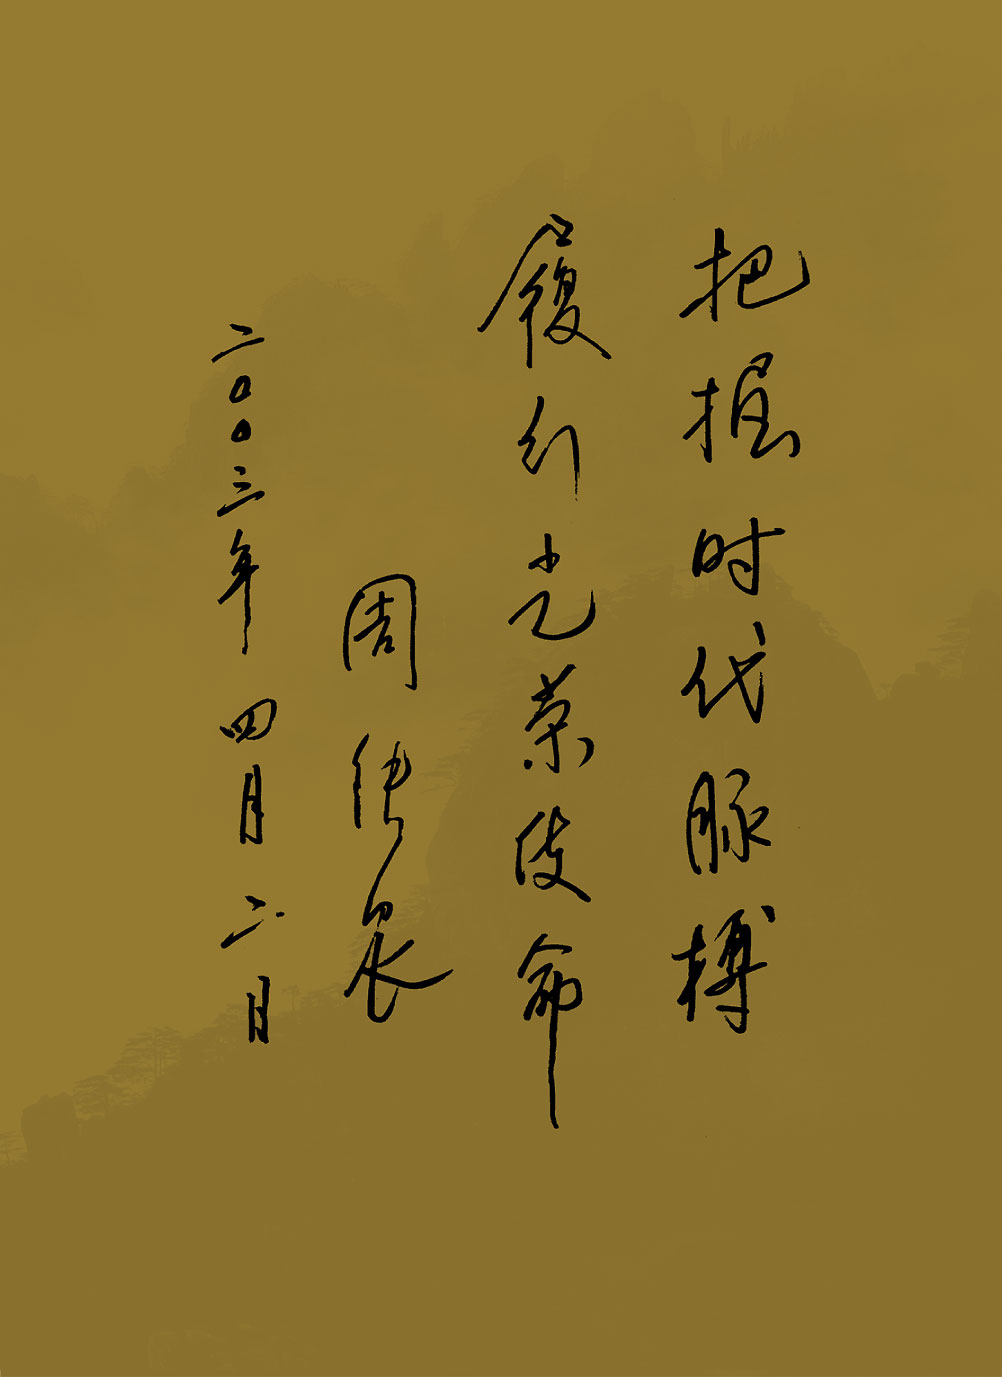 把握时代脉搏
履行光荣使命
周
二〇〇三年四月二日